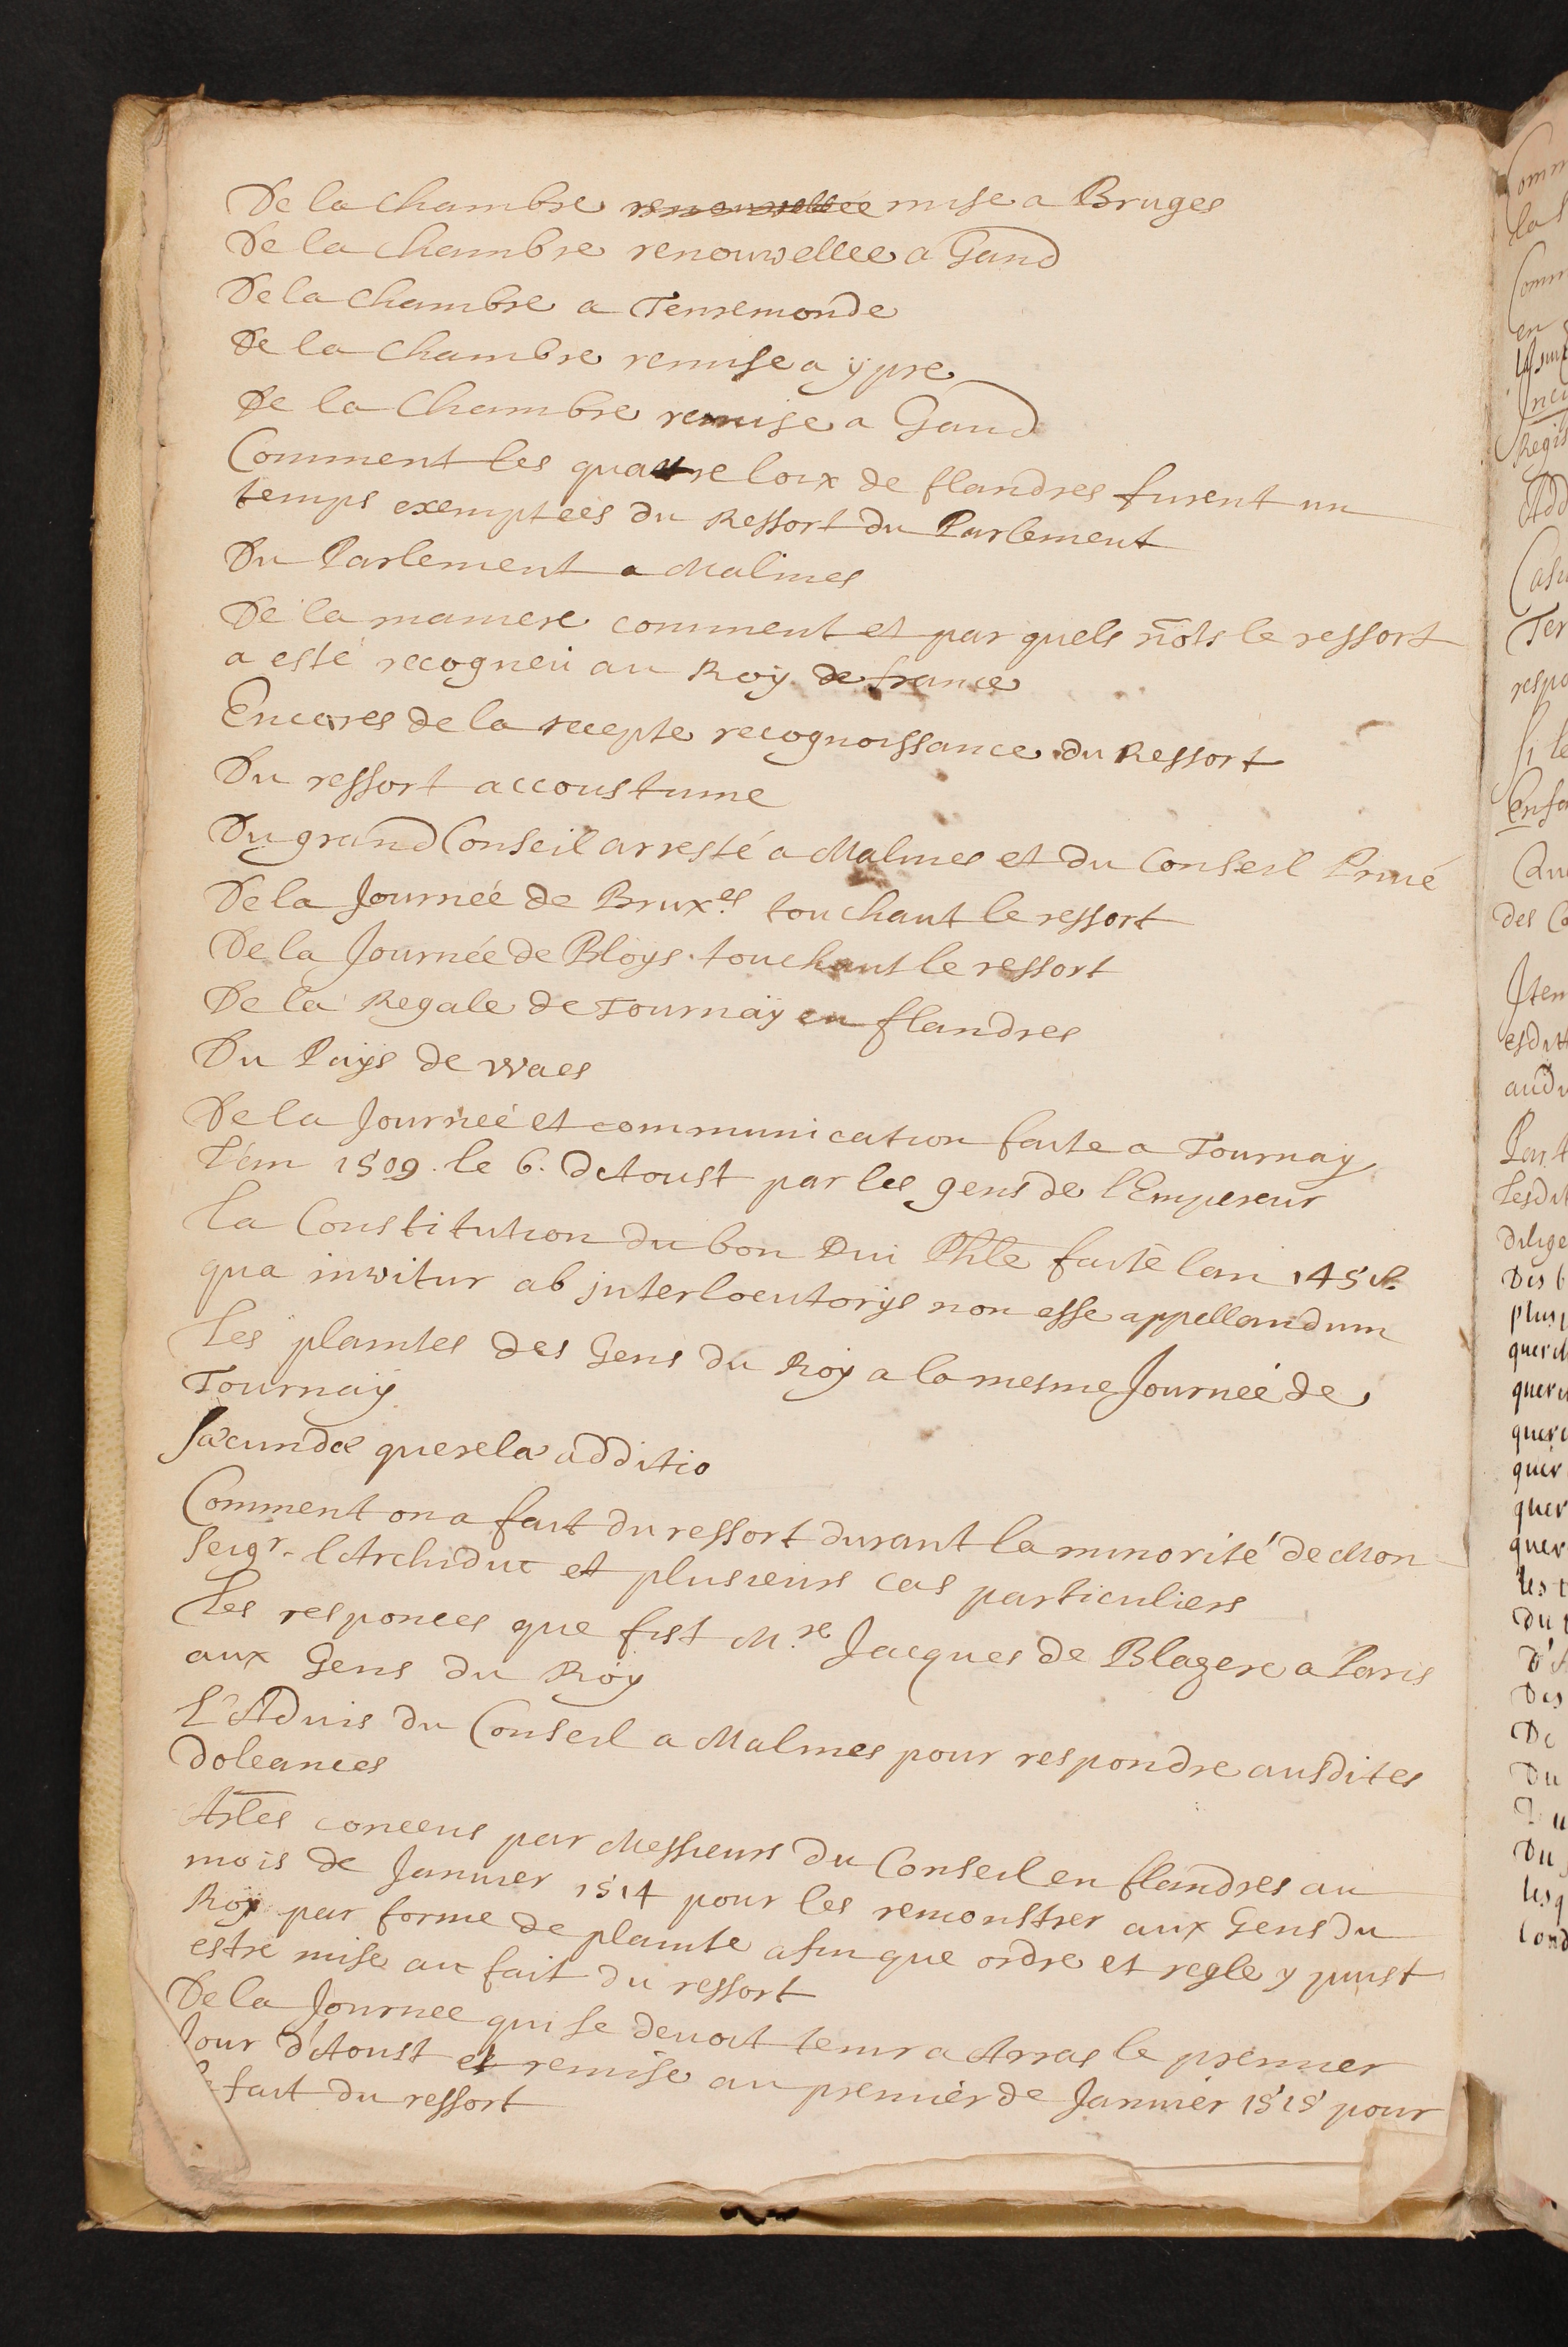 De la chambre renouvellée mise a Bruges
De la chambre renouvellee a Gand
De la chambre a Tenremonde
De la chambre remise a ÿpre
De la Chambre remise a Gand
Comment les quattre loix de flandres furent un
temps exemptées du Ressort du Parlement
Du Parlement a Malines
De la maniere comment et par quels mots le ressort
a esté recogneu au Roÿ de france
Encores de la recepte recognoissance du Ressort
Du ressort accoustume
Du grand Conseil arresté a Malines et du Conseil Privé
De la Journeé de Brux.es touchant le ressort
De la Journée de Bloys touchant le ressort
De la Regale de Tournaÿ en flandres
Du Paÿs de Waes
De la Journeé et communication faite a Tournay
L'an 1509. le 6. d'Aoust par les gens de l'Empereur
La Constitution du bon Phle faite lan
qua inwitur ab jnterlocutorÿs non esse appellandum
Les plaintes des Gens du Roÿ a la mesme Journeé de
Tournaÿ
Sæcundæ querela additio
Comment on a fait du ressort durant la minorité de Mon
seigr. l'Archiduc et plusieurs cas particuliers
Les responces que fist M.re Jacques de Blazere a Paris
aux Gens du Roÿ
L'Advis du Conseil a Malines pour respondre ausdites
doleances
Artles conceus par Messieurs du Conseil en flandres au
mois de Janvier 1514 pour les remonstrer aux Gens du
Roÿ par forme de plainte afin que ordre et regle y puist
estre mise au fait du ressort
De la Journee qui se devoit tenir a Arras le premier
Jour d'Aoust et remise au premiér de Janviér 1515 pour
fait du ressort